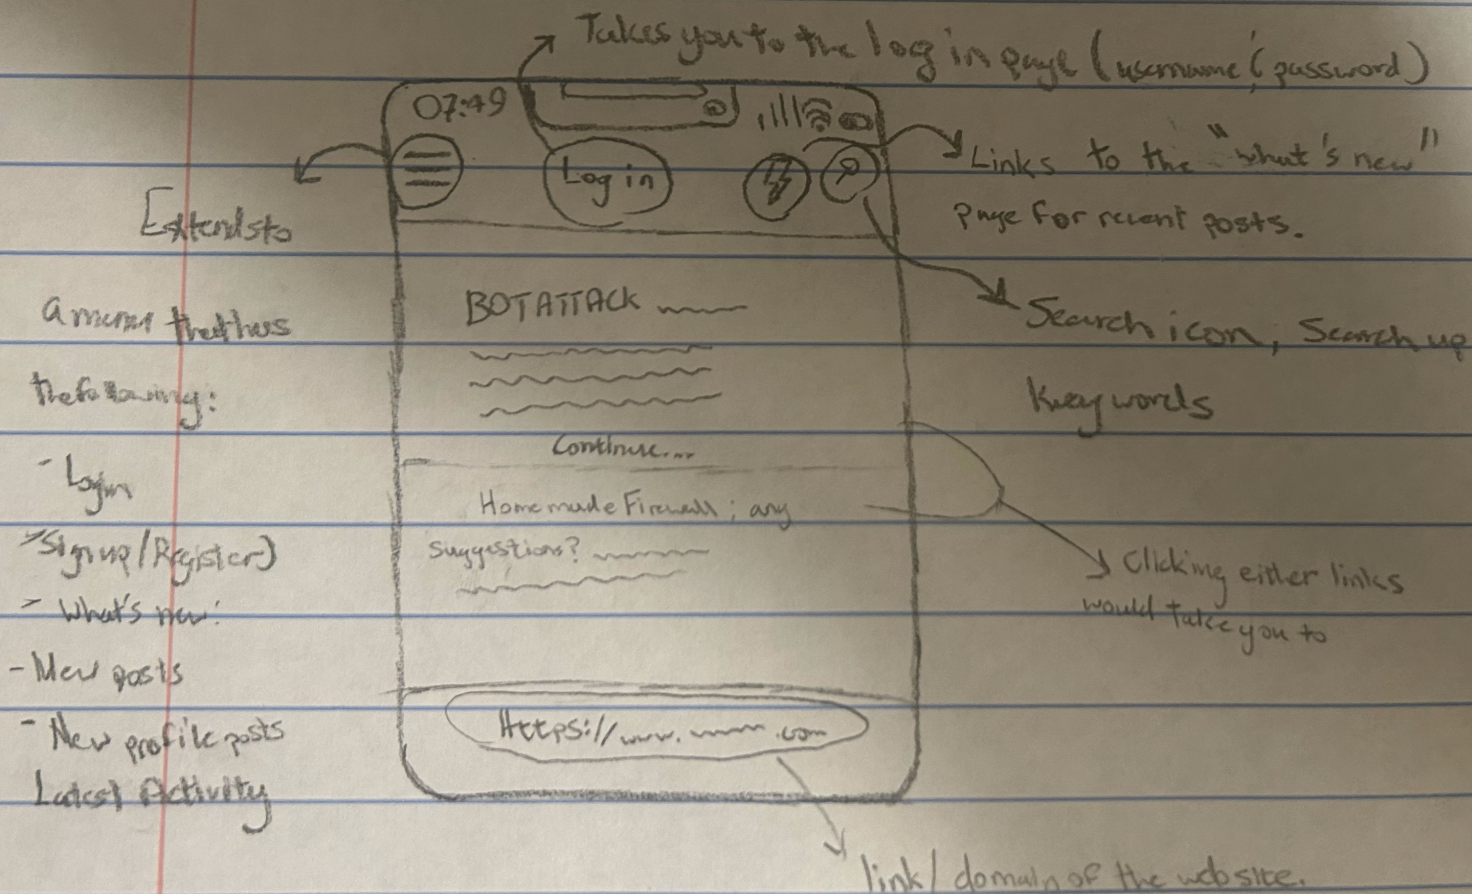 Takes you to the log in page (username & password)
07:49
Log in
Links to the "what's new"
page for recent posts.
Extends to
a menu that has
the following:
- Login
> Sign up/Register)
> What's new:
- New posts
- New profile posts
Latest Activity
Search icon, Search up
Keywords
BOT ATTACK
Continue...
Homemade Firewall; any
suggestions?
Clicking either links
would take you to
Https://www. .com
link/domain of the website.